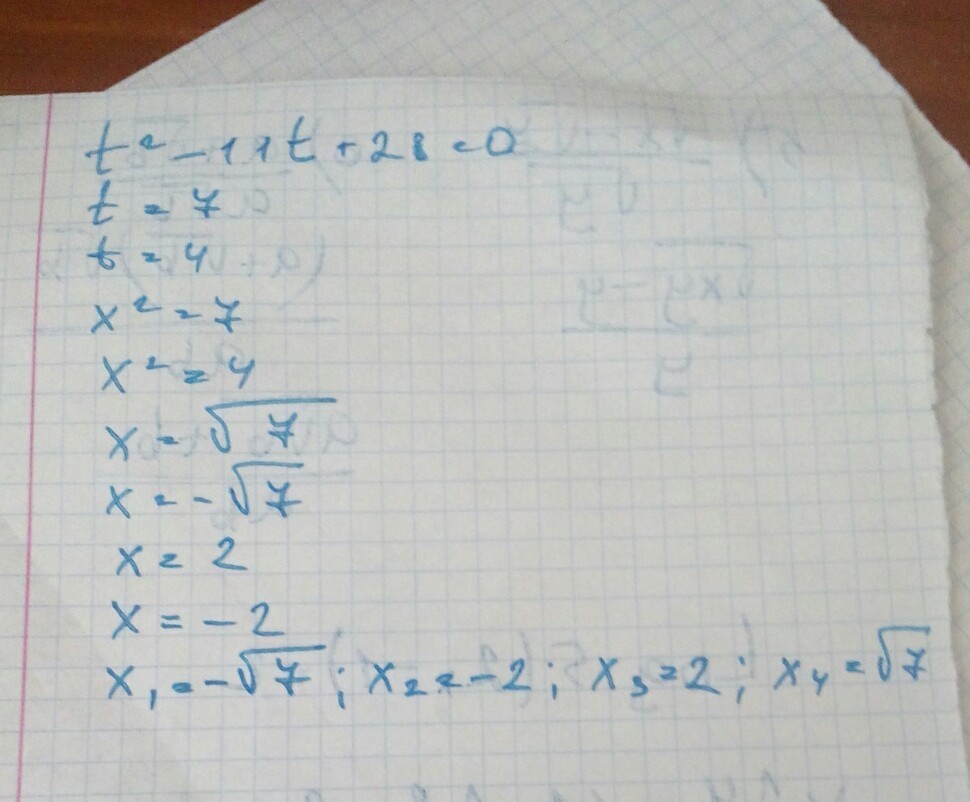 t² - 11t + 28 = 0
t = 7
t = 4
x² = 7
x² = 4
x = √7
x = -√7
x = 2
x = -2
x₁ = -√7 ; x₂ = -2 ; x₃ = 2 ; x₄ = √7